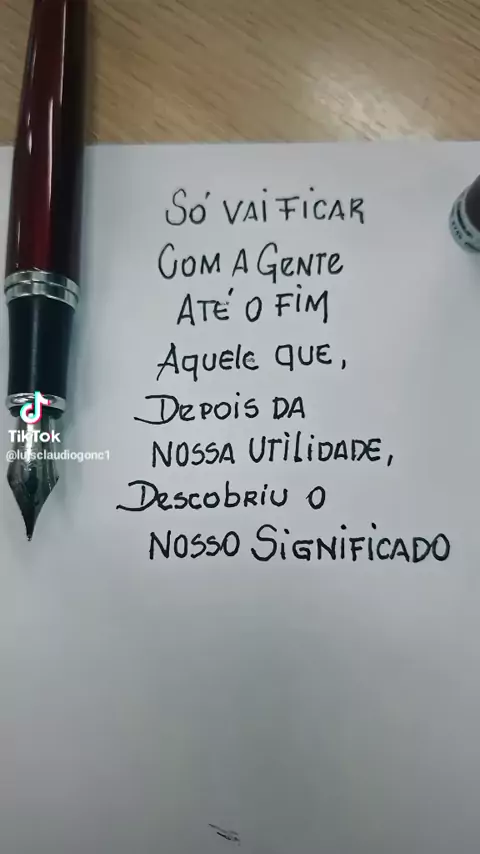 Só VAI FICAR
COM A GENTE
ATÉ O FIM
AQUELE QUE,
DEPOIS DA
NOSSA UTILIDADE,
DESCOBRIU O
NOSSO SIGNIFICADO
TikTok
@luisclaudiogonc1